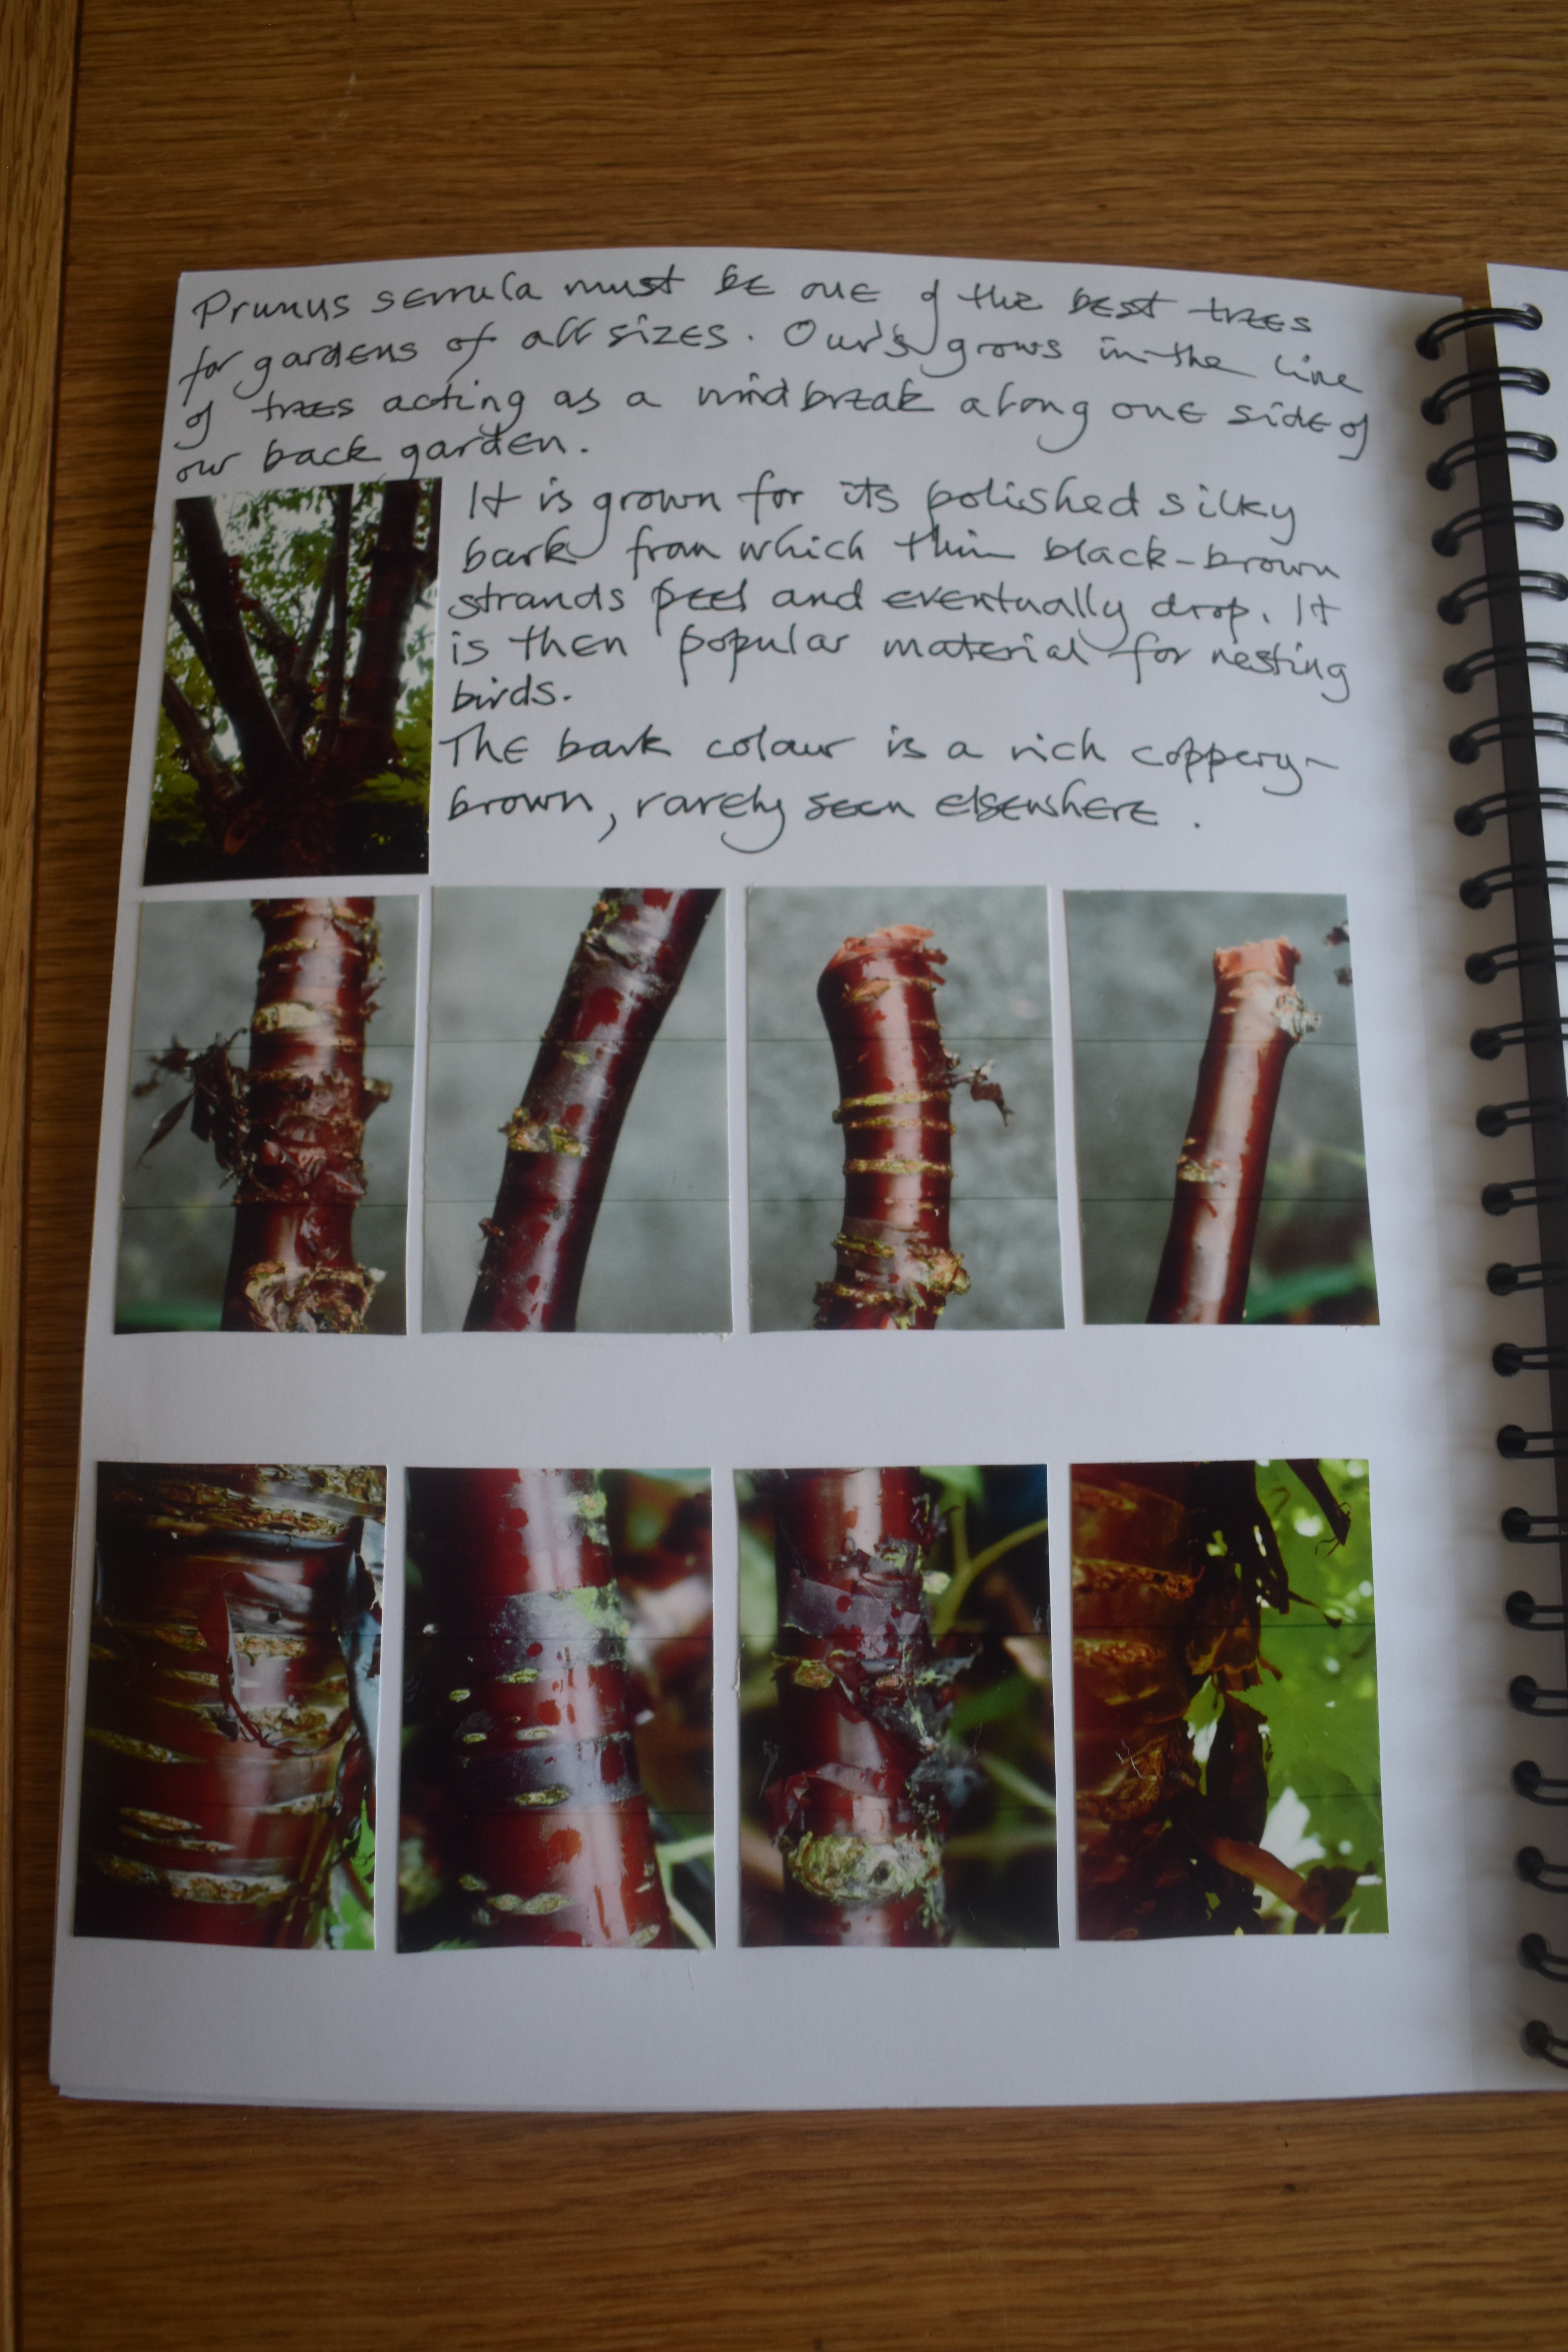 Prunus serrula must be one of the best trees
for gardens of all sizes. Our's grows in the line
of trees acting as a windbreak along one side of
our back garden.
It is grown for its polished silky
bark from which thin black-brown
strands peel and eventually drop. It
is then popular material for nesting
birds.
The bark colour is a rich coppery-
brown, rarely seen elsewhere.